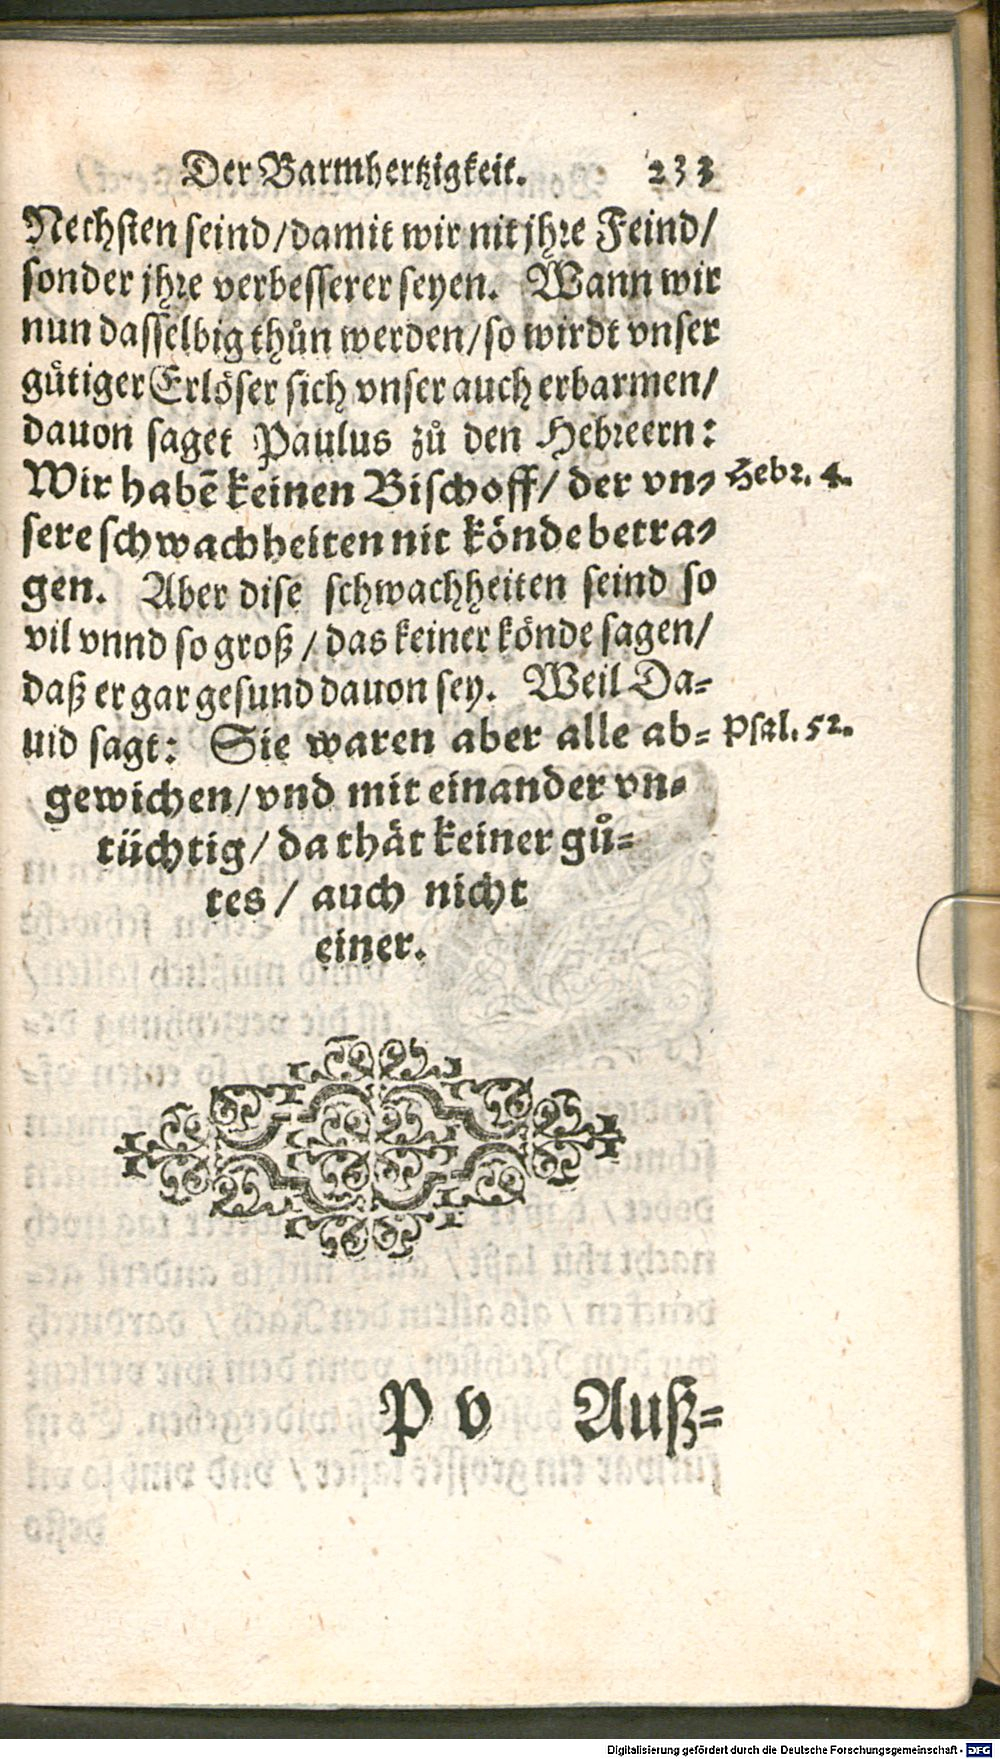 Der Barmhertzigkeit. 233
Nechsten seind/damit wir nit jhre Feind/
sonder jhre verbesserer seyen. Wann wir
nun dasselbig thůn werden/so wirdt vnser
gůtiger Erlöser sich vnser auch erbarmen/
dauon saget Paulus zů den Hebreern:
Wir habē keinen Bischoff/ der vn= Hebr. 4.
sere schwachheiten nit könde betra=
gen. Aber dise schwachheiten seind so
vil vnnd so groß/ das keiner könde sagen/
daß er gar gesund dauon sey. Weil Da=
uid sagt: Sie waren aber alle ab= Psal. 52.
gewichen/vnd mit einander vn=
tüchtig/ da thät keiner gů=
tes/ auch nicht
einer.
P v Auß=
Digitalisierung gefördert durch die Deutsche Forschungsgemeinschaft - DFG